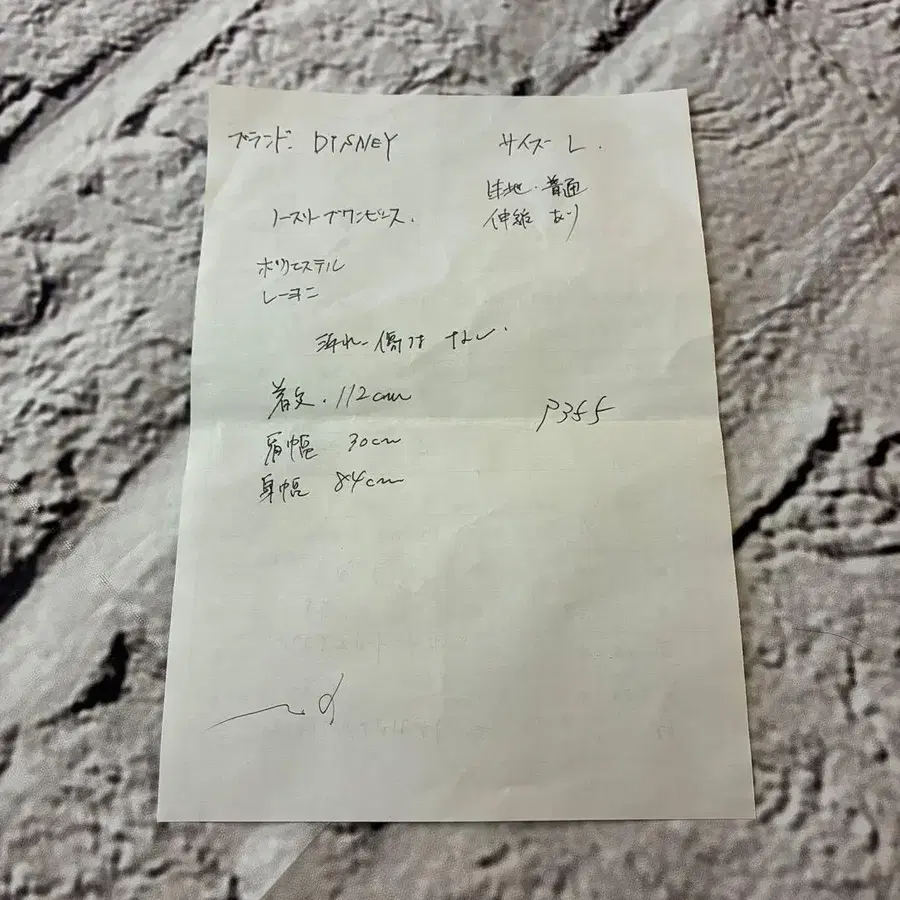 ブランド. DISNEY
サイズ L.
生地.普通
伸縮 あり
ノースリーブワンピース.
ポリエステル
レーヨン
汚れー傷は なし.
着丈.112cm
P355
肩幅 30cm
身幅 84cm